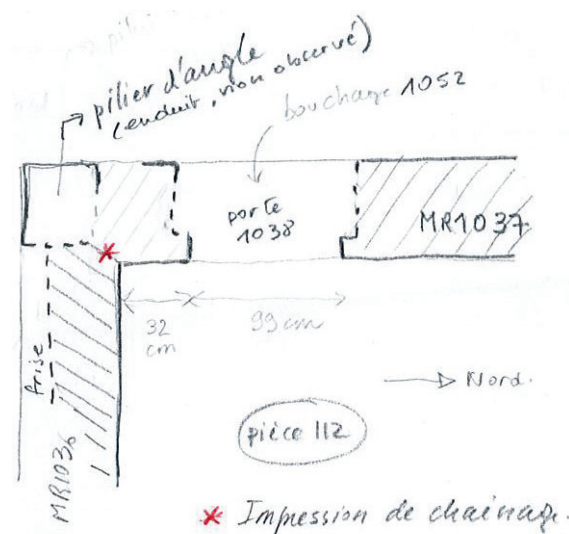 pilier d'angle
(enduit, non observé)
bouchage 1052
porte
1038
MR1037
32
cm
99 cm
frise
MR1036
Nord.
pièce 112
* Impression de chainage.